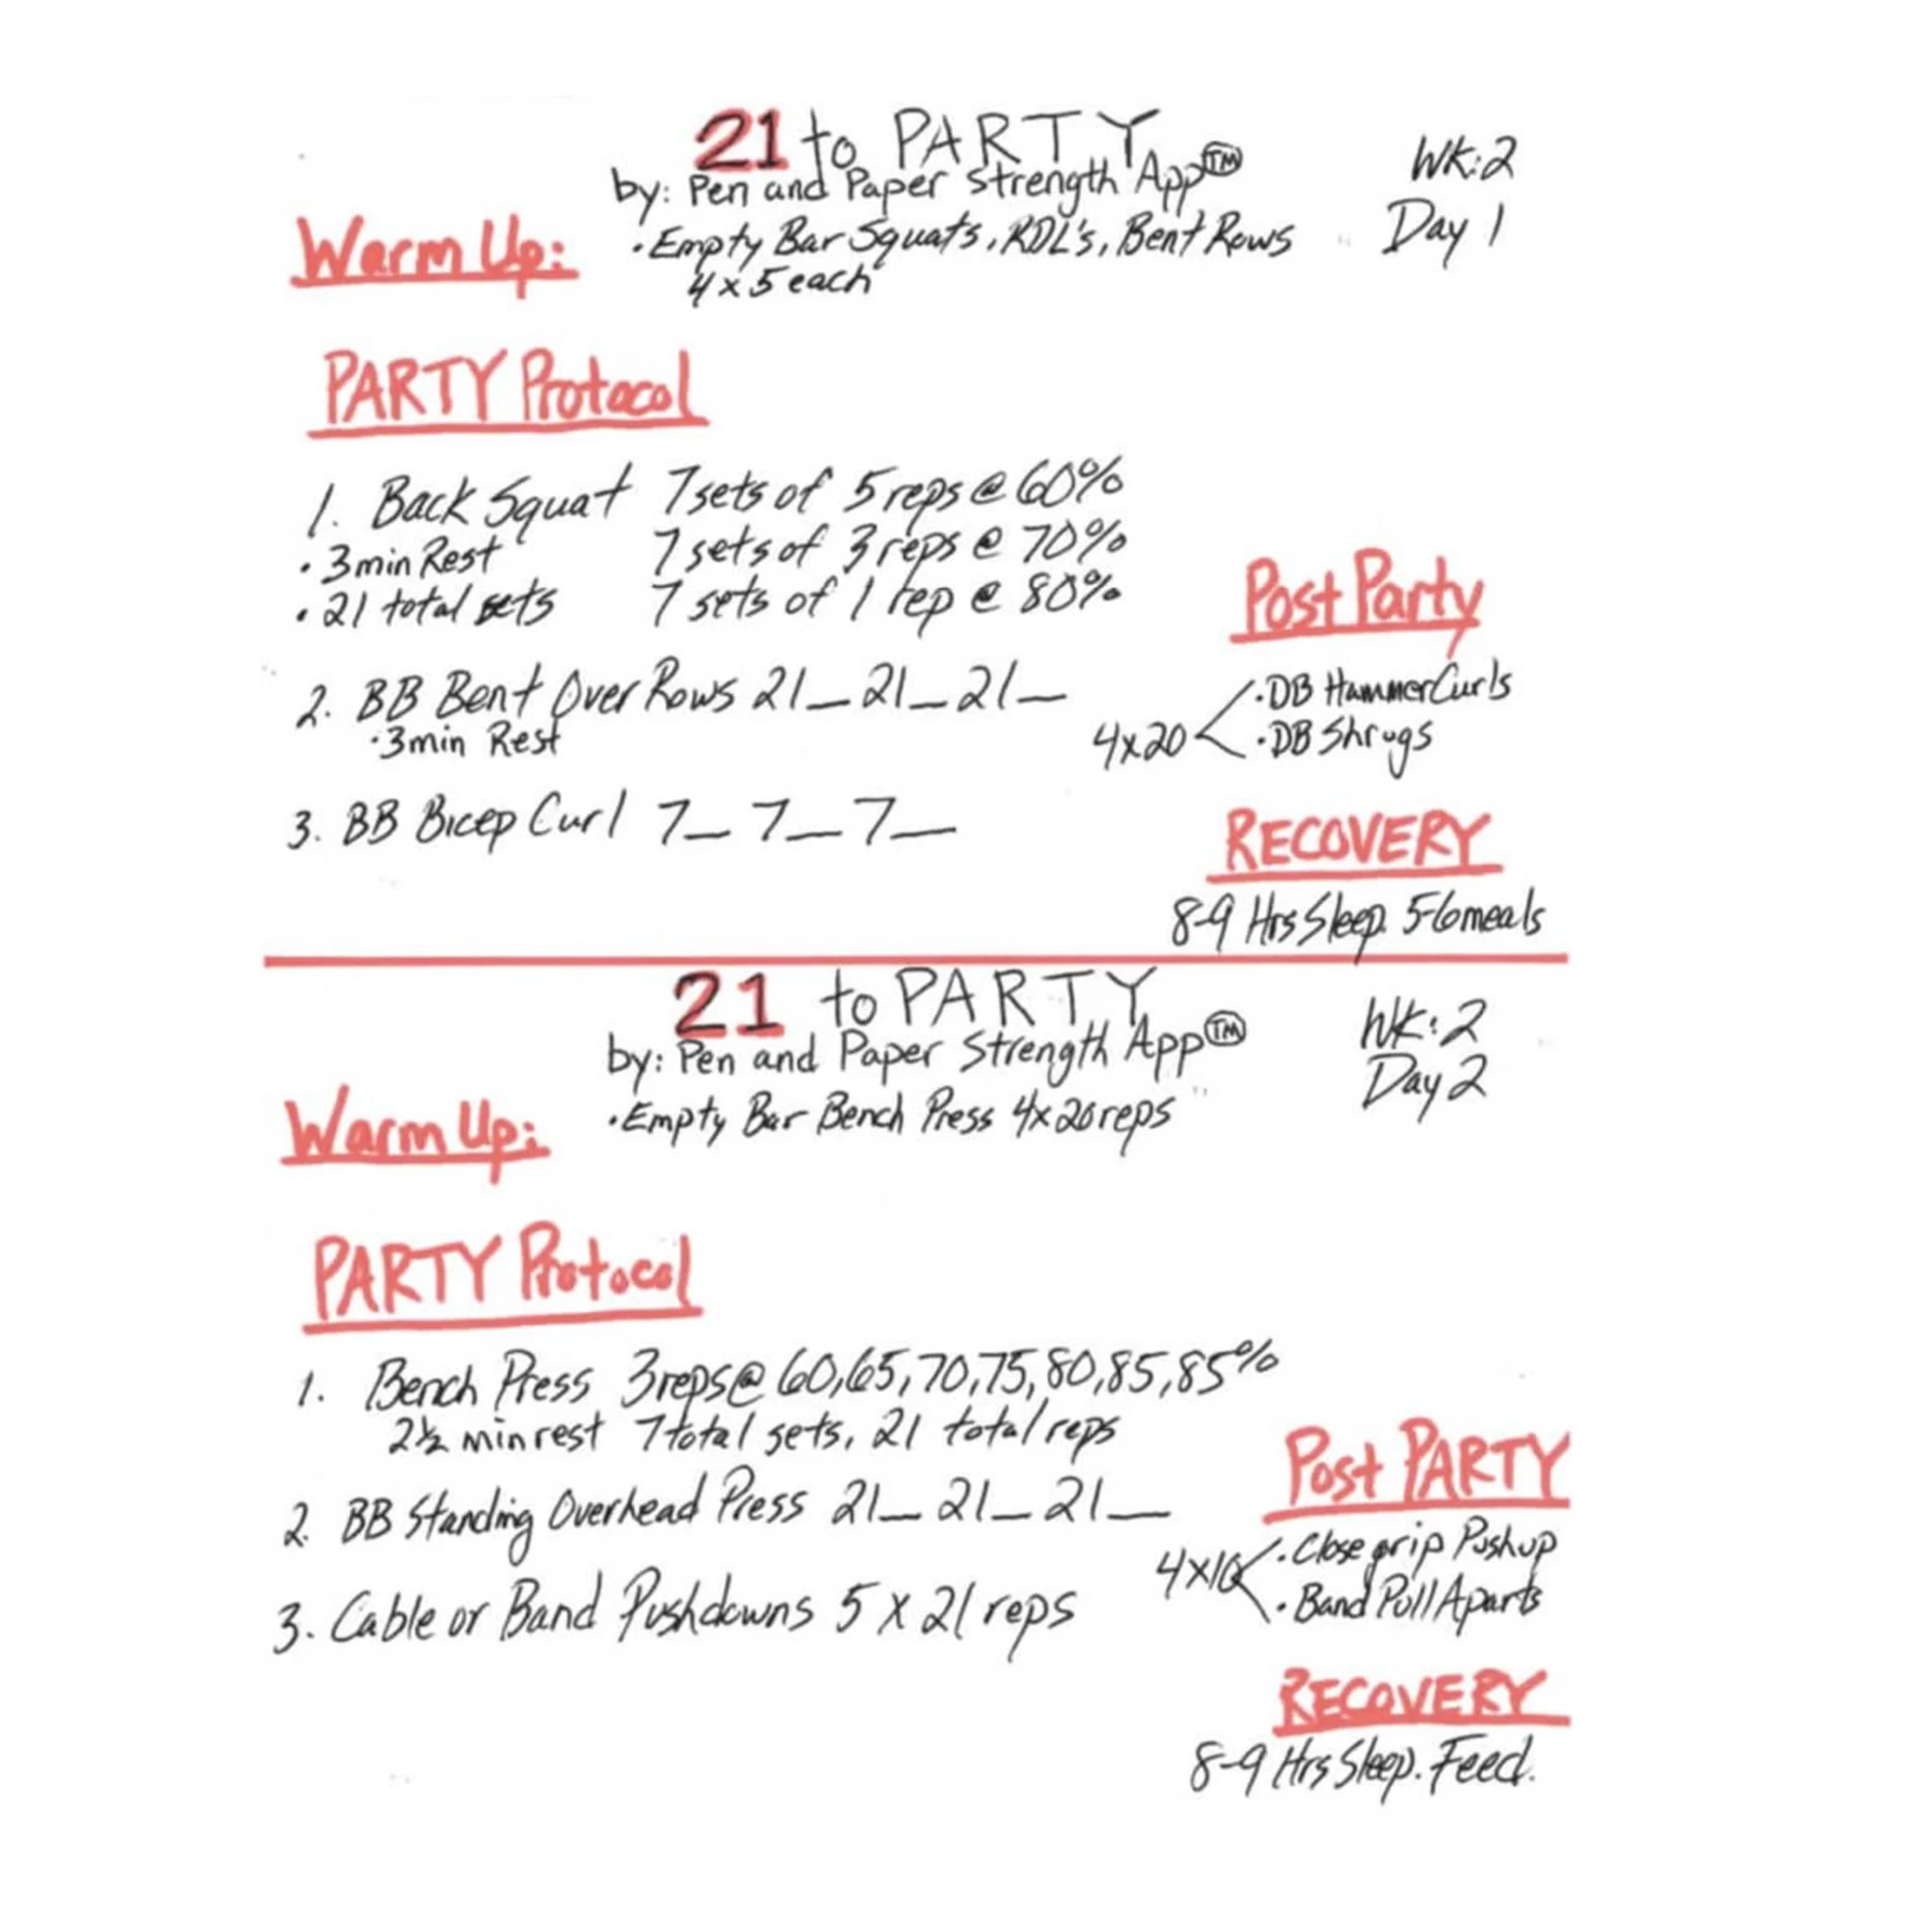 21 to PARTY
by: Pen and Paper Strength App™
Wk:2
Day 1
Warm Up:
• Empty Bar Squats, RDL's, Bent Rows
4 x 5 each
PARTY Protocol
1. Back Squat 7 sets of 5 reps @ 60%
• 3 min Rest 7 sets of 3 reps @ 70%
• 21 total sets 7 sets of 1 rep @ 80%
2. BB Bent Over Rows 21_ 21_ 21_
• 3 min Rest
3. BB Bicep Curl 7_ 7_ 7_
Post Party
4x20
• DB Hammer Curls
• DB Shrugs
RECOVERY
8-9 Hrs Sleep. 5-6 meals
21 to PARTY
by: Pen and Paper Strength App™
Wk: 2
Day 2
Warm Up:
• Empty Bar Bench Press 4x20 reps
PARTY Protocol
1. Bench Press 3 reps @ 60, 65, 70, 75, 80, 85, 85%
2½ min rest 7 total sets, 21 total reps
2. BB Standing Overhead Press 21_ 21_ 21_
3. Cable or Band Pushdowns 5 X 21 reps
Post PARTY
4x10
• Close grip Pushup
• Band Pull Aparts
RECOVERY
8-9 Hrs Sleep. Feed.